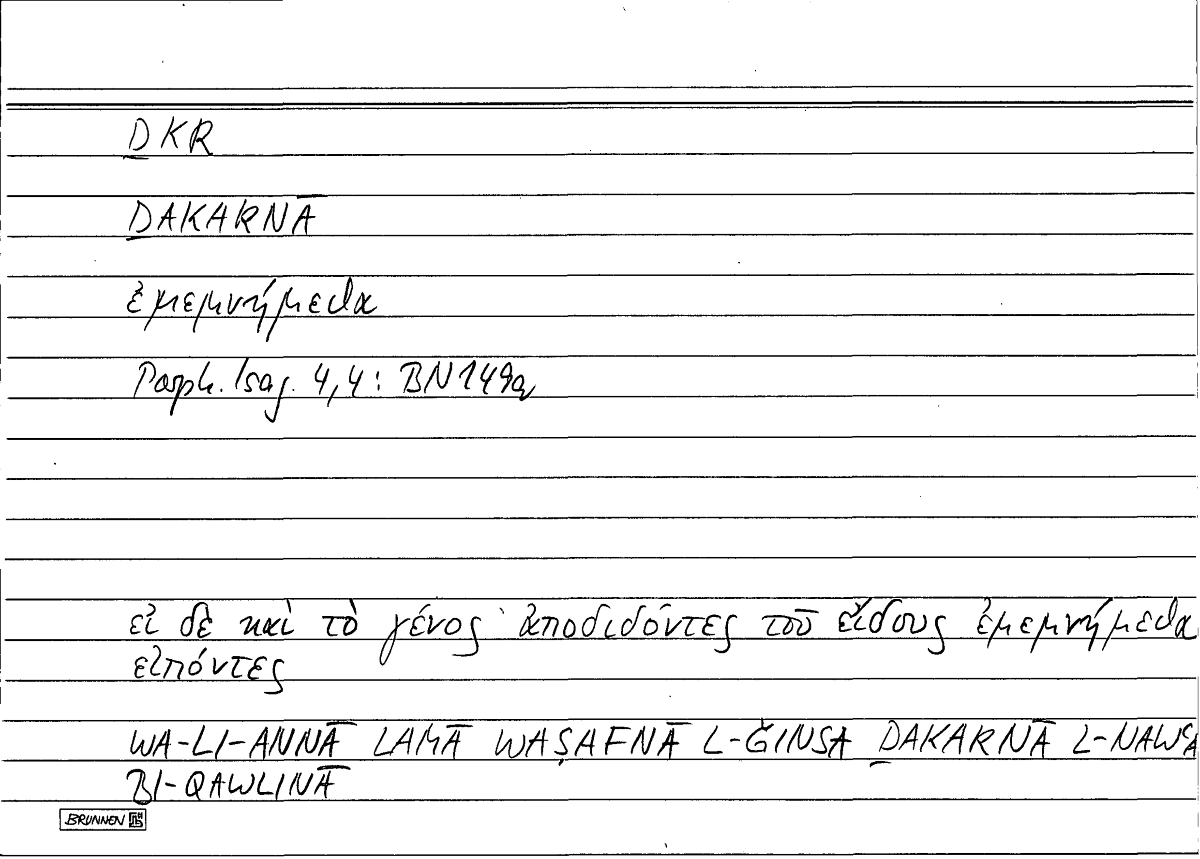 ḎKR
ḎAKARNĀ
ἐμεμνήμεθα
Porph. Isag. 4,4: BN 149a
εἰ δὲ καὶ τὸ γένος ἀποδιδόντες τοῦ εἴδους ἐμεμνήμεθα
εἰπόντες
WA-LI-ANNĀ LAMĀ WAṢAFNĀ L-ǦINSA ḎAKARNĀ L-NAWʿA
BI-QAWLINĀ
BRUNNEN